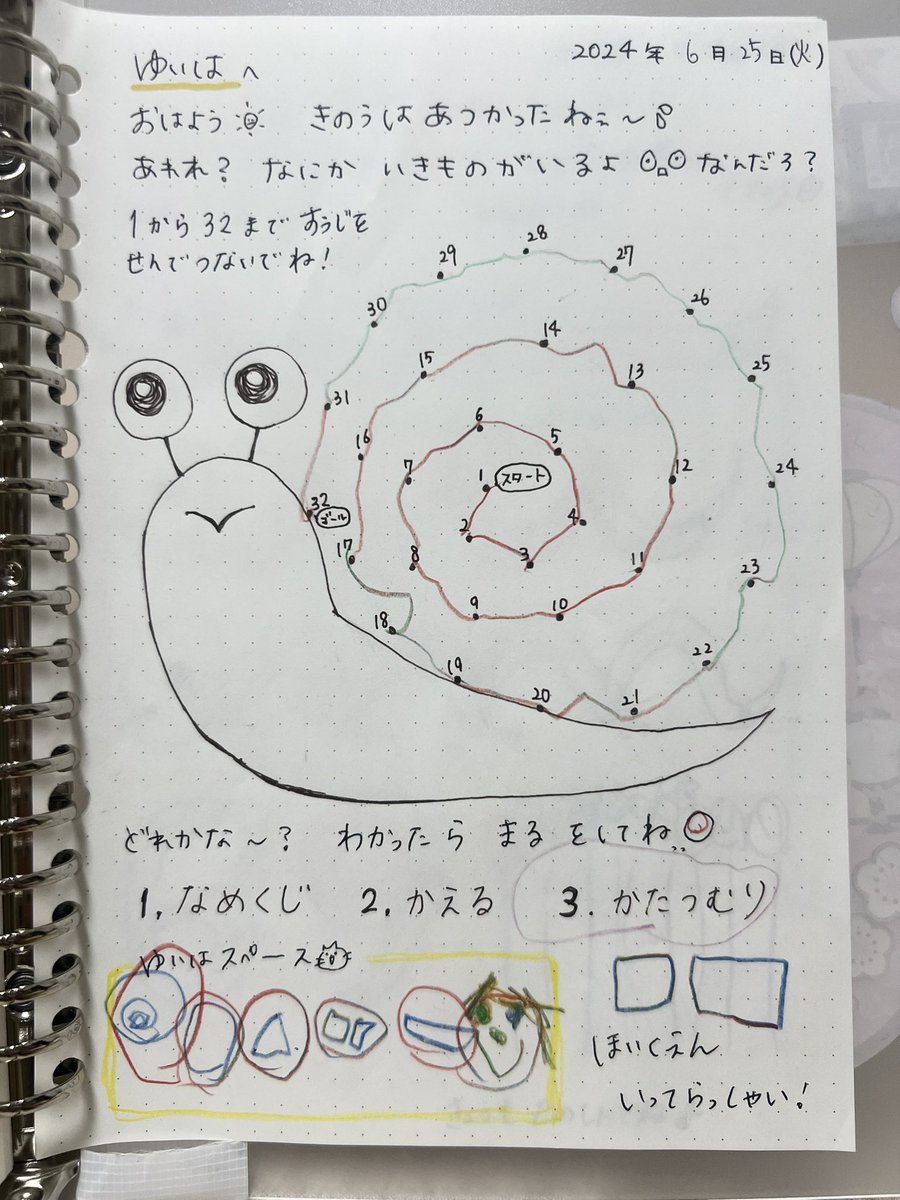 2024年 6月 25日(火)
ゆいはへ
おはよう きのうは あつかったねぇ〜
あれれ? なにか いきものがいるよ なんだろ?
1から32まで すうじを
せんでつないでね!
28
29
27
30
26
14
15
13
25
31
6
16
5
7
1 スタート
12
24
32 ゴール
4
2
17
3
8
11
23
9
10
18
22
19
20
21
どれかな〜? わかったら まるをしてね
1. なめくじ 2. かえる 3. かたつむり
ゆいはスペース
ほいくえん
いってらっしゃい!